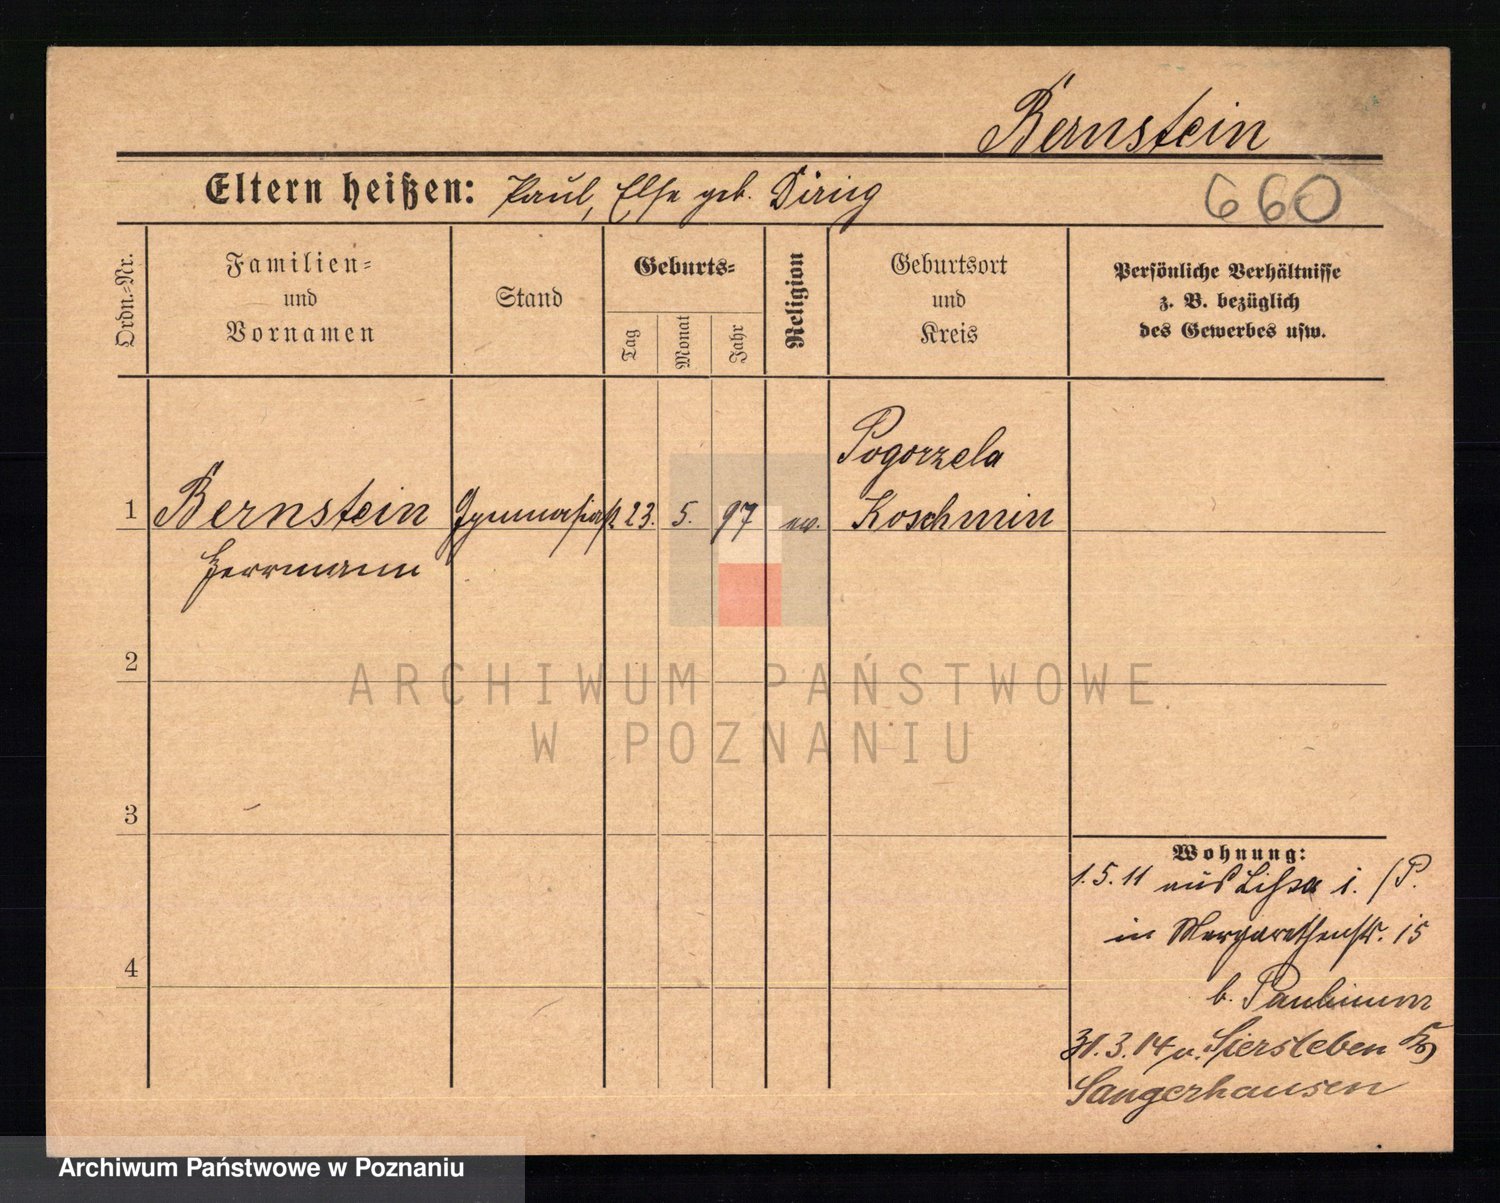 Bernstein
Eltern heißen: Paul, Else geb.
660
Ordn.-Nr.
Familien-
und
Vornamen
Stand
Geburts-
Tag
Monat
Jahr
Religion
Geburtsort
und
Kreis
Persönliche Verhältnisse
z. B. bezüglich
des Gewerbes usw.
1 Bernstein Gymnasiast 23. 5. 97 ev. Pogorzela
Koschmin
Herrmann
2
3
4
ARCHIWUM PAŃSTWOWE
W POZNANIU
Wohnung:
1.5.11 aus Lissa i. /P.
in Margarethenstr. 15
b. Paulinum
31.3.14 n. Siersleben Kr
Sangerhausen
Archiwum Państwowe w Poznaniu